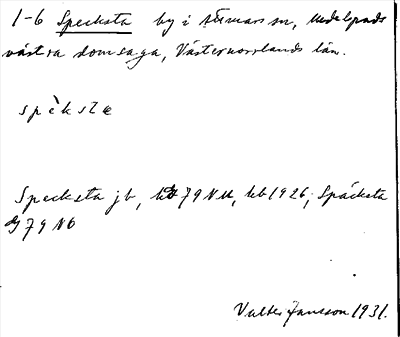 1-6 Specksta by i Attmars sn, Medelpads
västra domsaga, Västernorrlands län.
spèkstæ
Specksta jb, kb 1926; Späcksta
79 NO
Valter Jansson 1931.